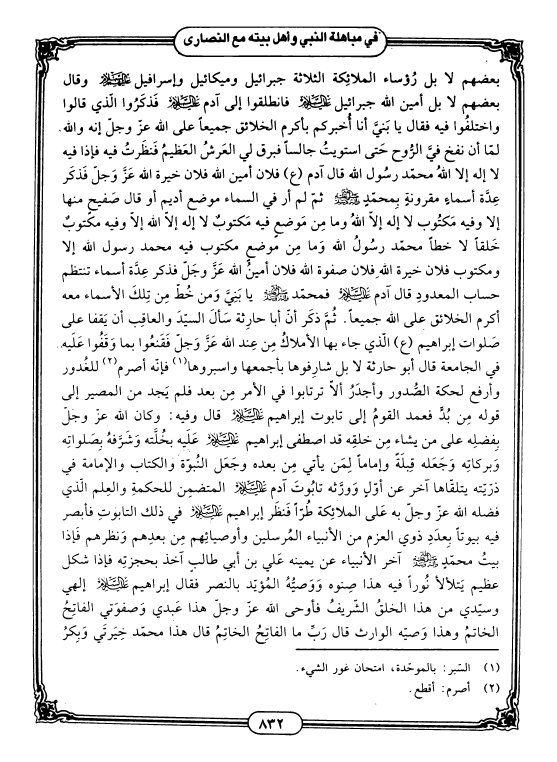 في مباهلة النبي وأهل بيته مع النصارى
بعضهم لا بل رُؤساء الملائكة الثلاثة جبرائيل وميكائيل وإسرافيل عليهم السلام وقال
بعضهم لا بل أمين الله جبرائيل عليه السلام فانطلقوا إلى آدم عليه السلام فَذكَرُوا الّذي قالوا
واختلفُوا فيه فقال يا بَنيَّ أنا أُخبركم بأكرم الخلائق جميعاً على الله عزّ وجلّ إنه والله.
لمّا أن نفخ فيَّ الرُّوح حَتى استويتُ جالساً فبرق لي العَرشُ العظيمُ فَنظَرتُ فيه فإذا فيه
لا إله إلا اللهُ محمّد رسولُ الله قال آدم (ع) فلان أمين الله فلان خيرة الله عَزَّ وَجلّ فَذكَر
عِدَّة أسماءٍ مقرونةٍ بِمحمّدٍ صلى الله عليه وآله ثمّ لم أر في السماء موضع أديم أو قال صَفيح منها
إلا وفيه مَكتُوب لا إله إلاّ اللهُ وما مِن مَوضعٍ فيه مكتوبٌ لا إله إلاّ الله إلاّ وفيه مكتُوبٌ
خَلقاً لا خطاً محمّد رسُولُ الله وَما مِن مَوضعٍ مكتوب فيه محمد رسول الله إلا
ومكتوب فلان خيرة الله فلان صفوة الله فلان أمينُ الله عَزَّ وجَلّ فذكر عِدَّة أسماء تنتظم
حساب المعدودِ قال آدم عليه السلام فمحمّد صلى الله عليه وآله يا بَنِيَّ وَمن خُطّ مِن تِلكَ الأسماء معه
أكرم الخلائق على الله جميعاً. ثُمَّ ذكَر أنّ أبا حارثة سَألَ السيّدَ والعاقِب أن يَقفا على
صَلوات إبراهيم (ع) الّذي جاء بها الأملاكُ مِن عِند الله عَزَّ وَجلّ فَقنعُوا بما وَقَفُوا عَلَيه
في الجامعة قال أبو حارثة لا بل شارِفوها بأجمعها واسبروها (١) فإنّه أصرم (٢) للغُدور
وأرفع لحكة الصُّدور وأجدَرُ ألاّ ترتابوا في الأمر مِن بعد فلم يَجد من المصير إلى
قوله مِن بُدٍّ فعمد القومُ إلى تابوت إبراهيم عليه السلام قال وفيه: وكان الله عزّ وجلّ
بِفضلِه على من يشاء مِن خلقِه قد اصطفى إبراهيم عليه السلام عَلَيه بخُلَّته وَشَرَّفهُ بِصَلواتِه
وَبركاتِه وَجَعَله قِبلَةً وإماماً لِمَن يأتي مِن بعده وجَعَل النُبوّة والكتاب والإمامة في
ذرّيّته يتلقّاها آخر عن أوّلٍ وَورَّثه تابُوتَ آدم عليه السلام المتضمِن للحكمةِ والعِلم الّذي
فضله الله عزّ وجلّ به على الملائكة طُرّاً فَنظَر إبراهيم عليه السلام في ذلك التابوتِ فأبصر
فيه بيوتاً بِعدَدِ ذوي العزم من الأنبياء المُرسلين وأوصيائِهم مِن بعدِهم وَنظرهم فَإذا
بيتُ محمّدٍ صلى الله عليه وآله آخر الأنبياء عن يمينه عَلي بن أبي طالبٍ آخذ بحجزتِه فإذا شكل
عظيم يَتلألأ نُوراً فيه هذا صِنوه وَوَصيُّهُ المُؤيّد بالنصر فقال إبراهيم عليه السلام إلهي
وسيّدي من هذا الخلقُ الشّريفُ فأوحى الله عزّ وجلّ هذا عَبدي وَصفوَتي الفاتِحُ
الخاتمُ وهذا وَصيّه الوارث قال رَبِّ ما الفاتِحُ الخاتِمُ قال هذا محمّد خِيَرتَي وَبِكرُ
(١) السّبر: بالموحّدة، امتحان غور الشيء.
(٢) أصرم: أقطع.
٨٣٢